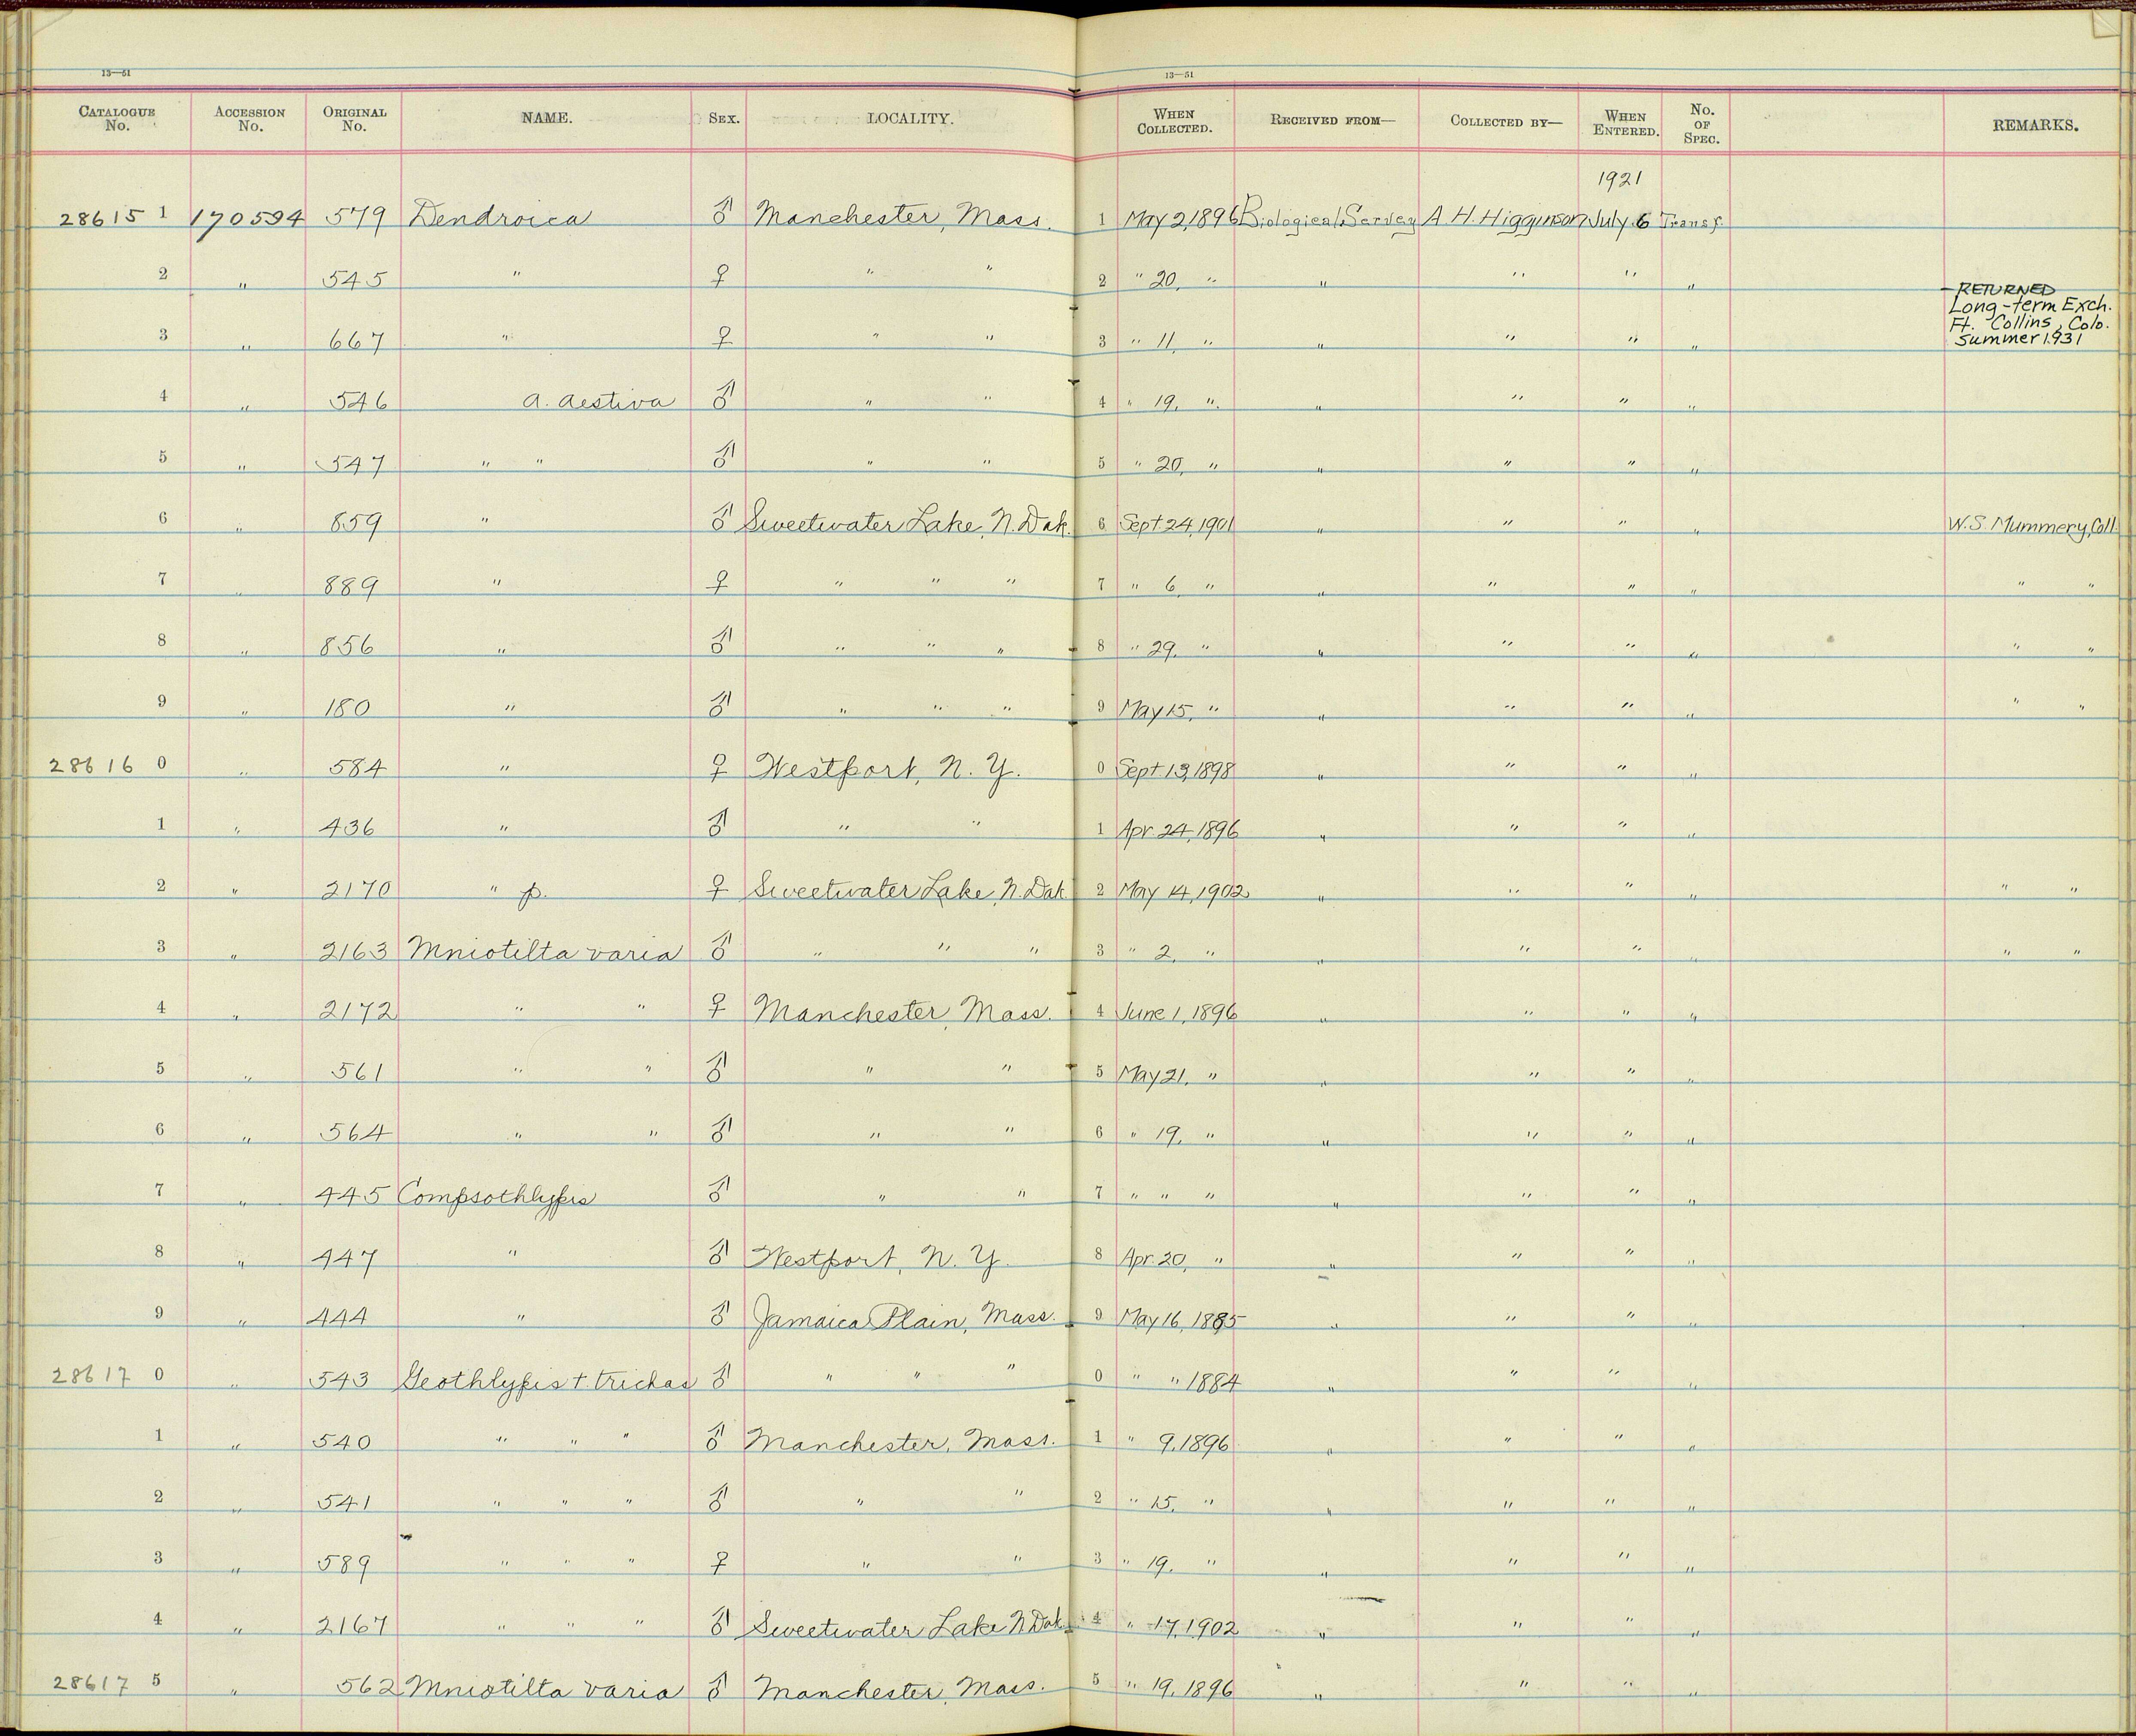 13—51 13—51
CATALOGUE No. ACCESSION No. ORIGINAL No. NAME. SEX. LOCALITY. WHEN COLLECTED. RECEIVED FROM— COLLECTED BY— WHEN ENTERED. No. OF SPEC. REMARKS.
1921
28615 1 170594 579 Dendroica ♂ Manchester, Mass. 1 May 2, 1896 Biological Survey A. H. Higginson July 6 Transf.
2 " 545 " ♀ " " 2 " 20, " " " " "
RETURNED
Long-term Exch.
Ft. Collins, Colo.
Summer 1931
3 " 667 " ♀ " " 3 " 11, " " " " "
4 " 546 a. aestiva ♂ " " 4 " 19, " " " " "
5 " 547 " " ♂ " " 5 " 20, " " " " "
6 " 859 " ♂ Sweetwater Lake, N. Dak. 6 Sept 24, 1901 " " " " W. S. Mummery, Coll.
7 " 889 " ♀ " " " 7 " 6 " " " " " " "
8 " 856 " ♂ " " " 8 " 29, " " " " " " "
9 " 180 " ♂ " " " 9 May 15, " " " " " " "
28616 0 " 584 " ♀ Westport, N. Y. 0 Sept. 13, 1898 " " " "
1 " 436 " ♂ " " 1 Apr. 24, 1896 " " " "
2 " 2170 " p. ♀ Sweetwater Lake, N. Dak 2 May 14, 1902 " " " " " "
3 " 2163 Mniotilta varia ♂ " " " 3 " 2, " " " " " " "
4 " 2172 " " ♀ Manchester, Mass. 4 June 1, 1896 " " " "
5 " 561 " " ♂ " " 5 May 21, " " " " "
6 " 564 " " ♂ " " 6 " 19, " " " " "
7 " 445 Compsothlypis ♂ " " 7 " " " " " " "
8 " 447 " ♂ Westport, N. Y. 8 Apr. 20, " " " " "
9 " 444 " ♂ Jamaica Plain, Mass. 9 May 16, 1885 " " " "
28617 0 " 543 Geothlypis t. trichas ♂ " " " 0 " " 1884 " " " "
1 " 540 " " " ♂ Manchester, Mass. 1 " 9, 1896 " " " "
2 " 541 " " " ♂ " " 2 " 15, " " " " "
3 " 589 " " " ♀ " " 3 " 19, " " " " "
4 " 2167 " " " ♂ Sweetwater Lake N Dak. 4 " 17, 1902 " " " "
28617 5 " 562 Mniotilta varia ♂ Manchester, Mass. 5 " 19, 1896 " " " "